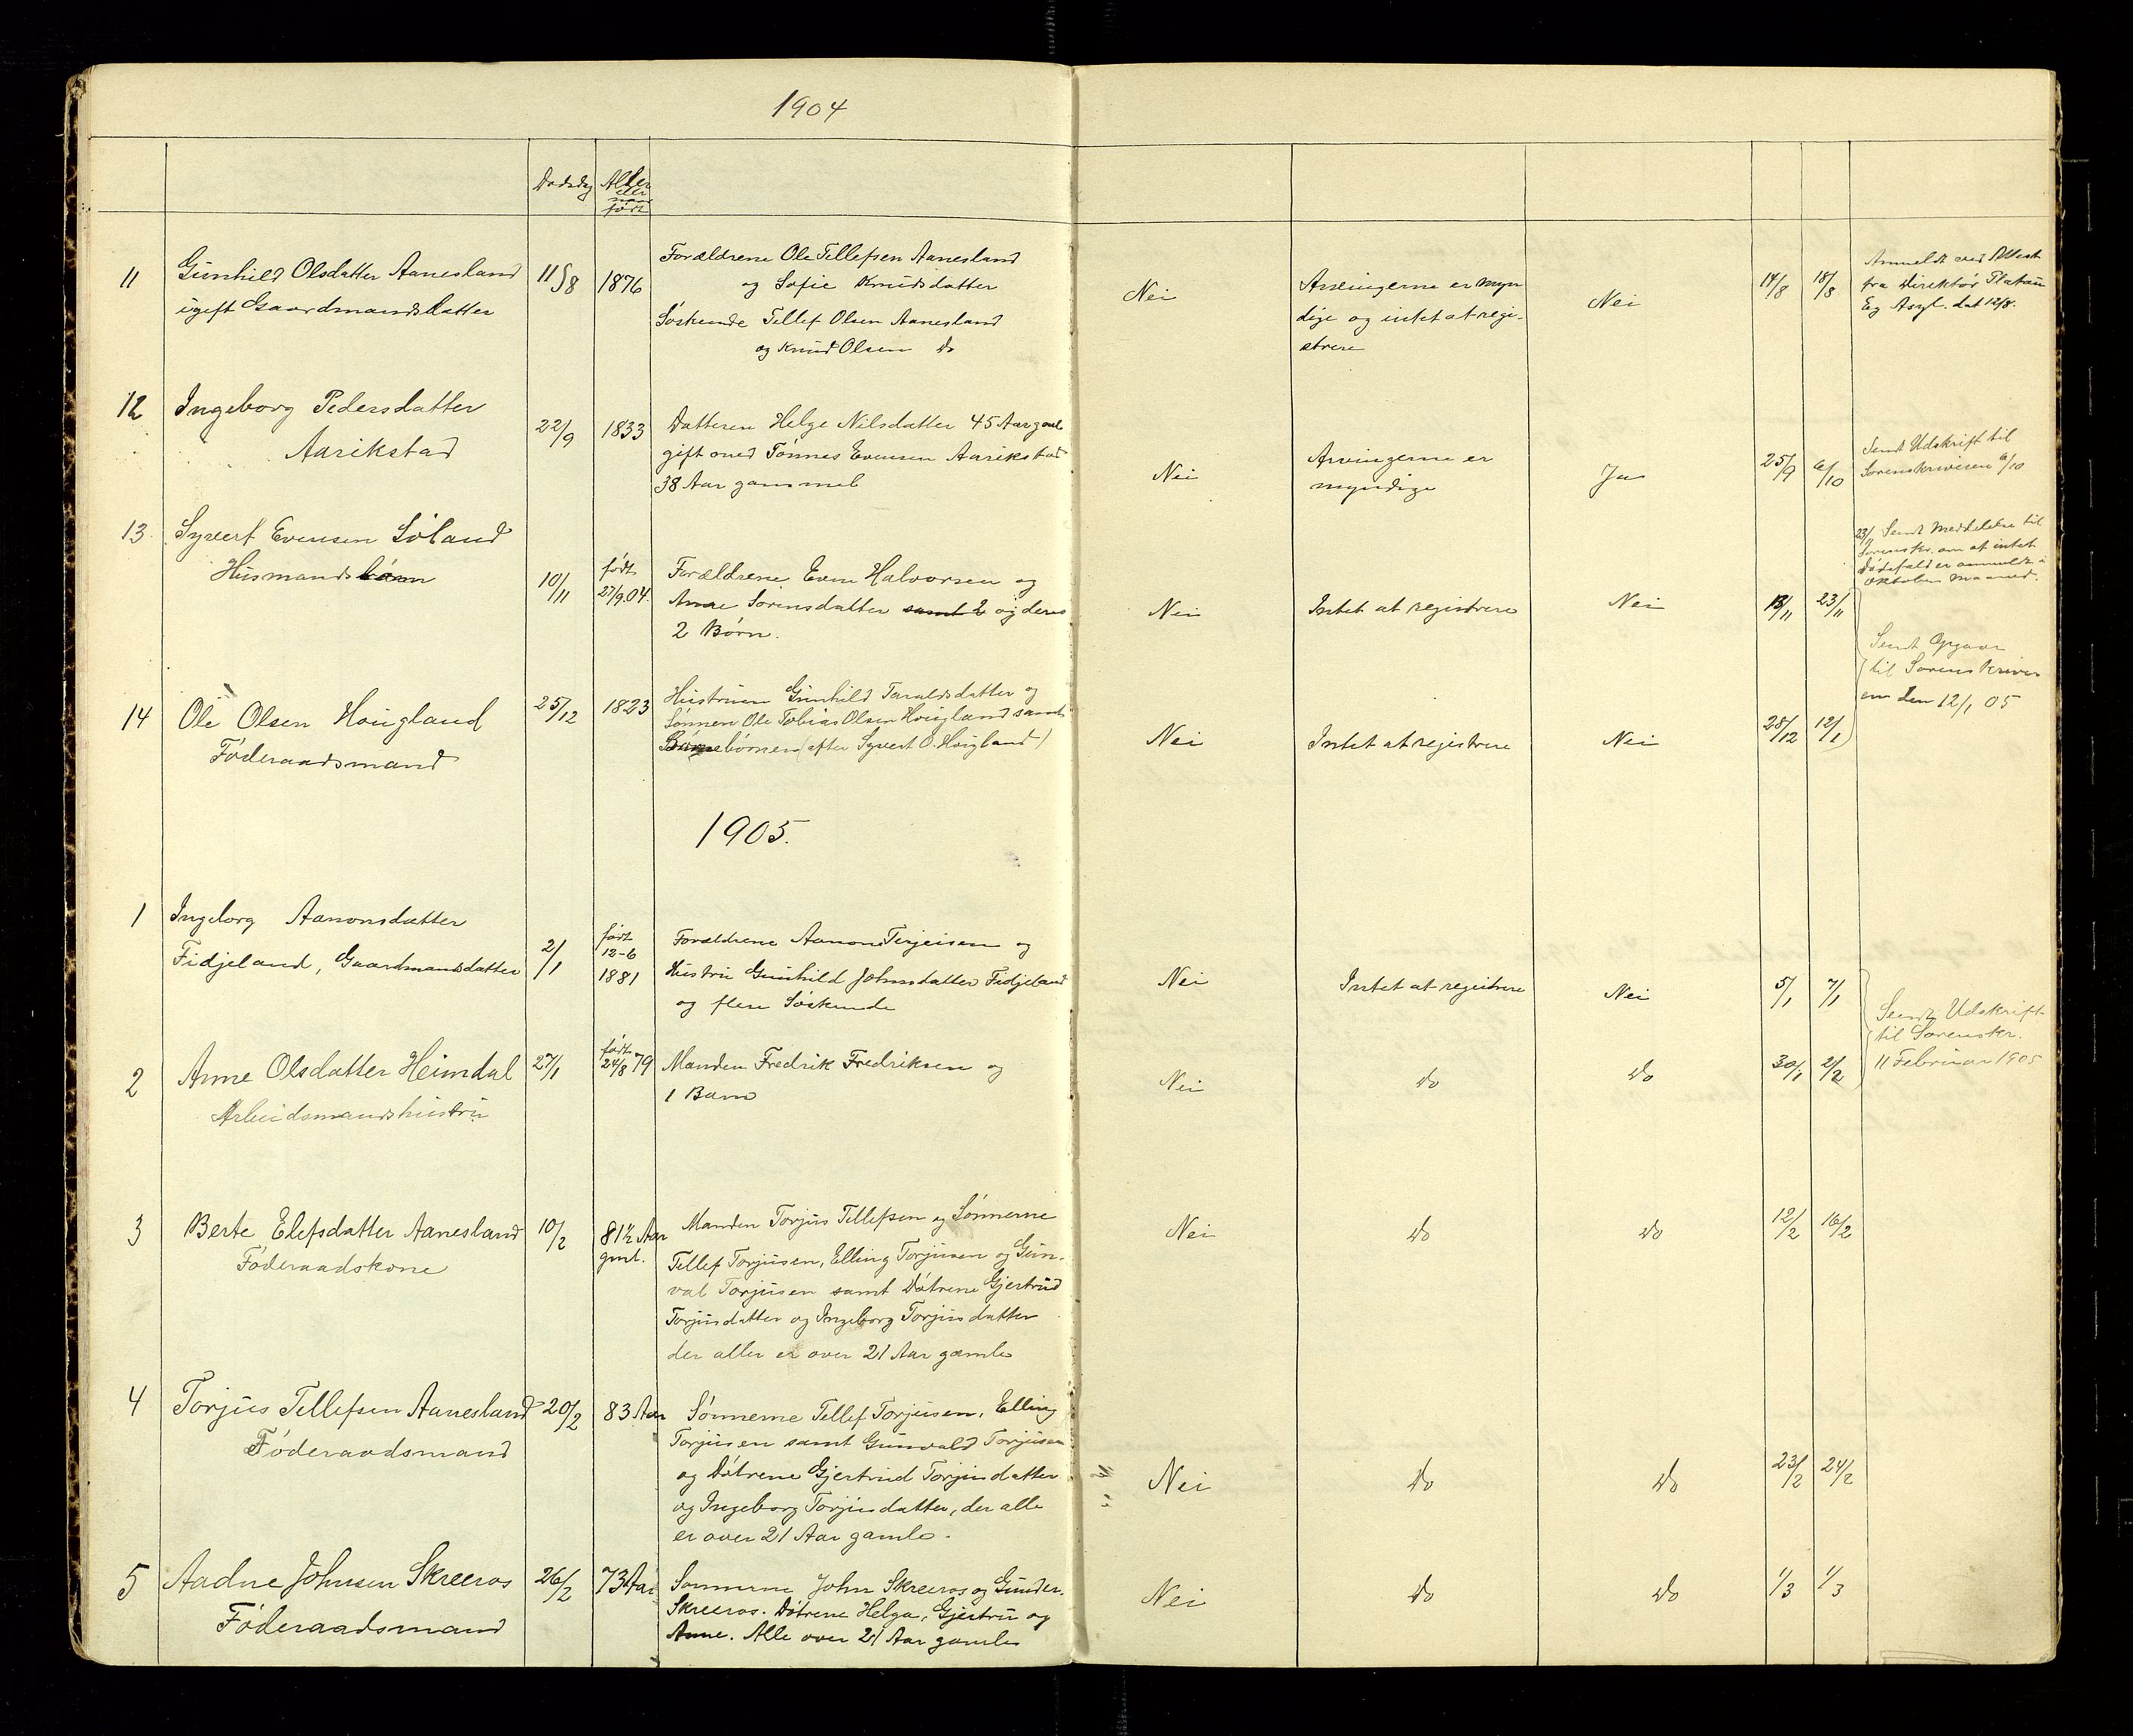 1904
Dødsdag
Alder
eller
naar
født
11
Gunhild Olsdatter Aanesland
ugift Gaardmandsdatter
11/8
1876
Forældrene Ole Tellefsen Aanesland
og Sofie Knudsdatter
Søskende Tellef Olsen Aanesland
og Knud Olsen Do
Nei
Arvingerne er myn
dige og intet at regi-
strere
Nei
14/8
18/8
Anmeldt ved Attest
fra Direktør
Eg Asyl. dat 12/8.
12
Ingeborg Pedersdatter
Aarikstad
22/9
1833
Datteren Helge Nilsdatter 45 Aar gml
gift med Tønnes Evensen Aarikstad
38 Aar gammel
Nei
Arvingerne er
myndige
Ja
25/9
6/10
Sendt Udskrift til
Sorenskriveren 6/10
13.
Syvert Evensen Søland
Husmandsbarn
10/11
født
27/9.04.
Forældrene Even Halvorsen og
Anne Sørensdatter samt 2 og deres
2 Børn.
Nei
Intet at registrere
Nei
13/11
23/11
23/11 Sendt Meddelelse til
Sorenskr. om at intet
Dødsfald er anmeldt i
Oktober Maaned.
14
Ole Olsen Hougland
Føderaadsmand
25/12
1823
Hustruen Gunhild Taraldsdatter og
Sønnen Ole Tobias Olsen Hougland samt
Børnebørnene (efter Syvert O. Hougland)
Nei
Intet at registrere
Nei
28/12
12/1
Sendt Opgave
til Sorenskriver
en den 12/1 05
1905.
1
Ingeborg Aanonsdatter
Fidjeland, Gaardmandsdatter
2/1
født
12-6
1881
Forældrene Aanon Terjeisen og
Hustru Gunhild Johnsdatter Fidjeland
og flere Søskende
Nei
Intet at registrere
Nei
5/1
7/1
Sendt Udskrift
til Sorenskr.
11 Februar 1905
2
Anne Olsdatter Heimdal
Arbeidsmandshustru
27/1
født
24/8 79
Manden Fredrik Fredriksen og
1 Barn
Nei
Do
Do
30/1
2/2
3
Berte Elefsdatter Aanesland
Føderaadskone
10/2
81½ Aar
gml.
Manden Torjus Tellefsen og Sønnerne
Tellef Torjusen, Elling Torjusen og Gun-
val Torjusen samt Døtrene Gjertrud
Torjusdatter og Ingeborg Torjusdatter
der aller er over 21 Aar gamle
Nei
Do
Do
12/2
16/2
4
Torjus Tellefsen Aanesland
Føderaadsmand
20/2
83 Aar
Sønnerne Tellef Torjusen, Elling
Torjusen samt Gunvald Torjusen
og Døtrene Gjertrud Torjusdatter
og Ingeborg Torjusdatter, der alle
er over 21 Aar gamle.
Nei
Do
Do
23/2
24/2
5
Aadne Johnsen Skreeros
Føderaadsmand
26/2
73 Aar
Sønnerne John Skreeros og Gunder.
Skreeros. Døtrene Helga, Gjertru og
Anne. Alle over 21 Aar gamle
Nei
Do
Do
1/3
1/3